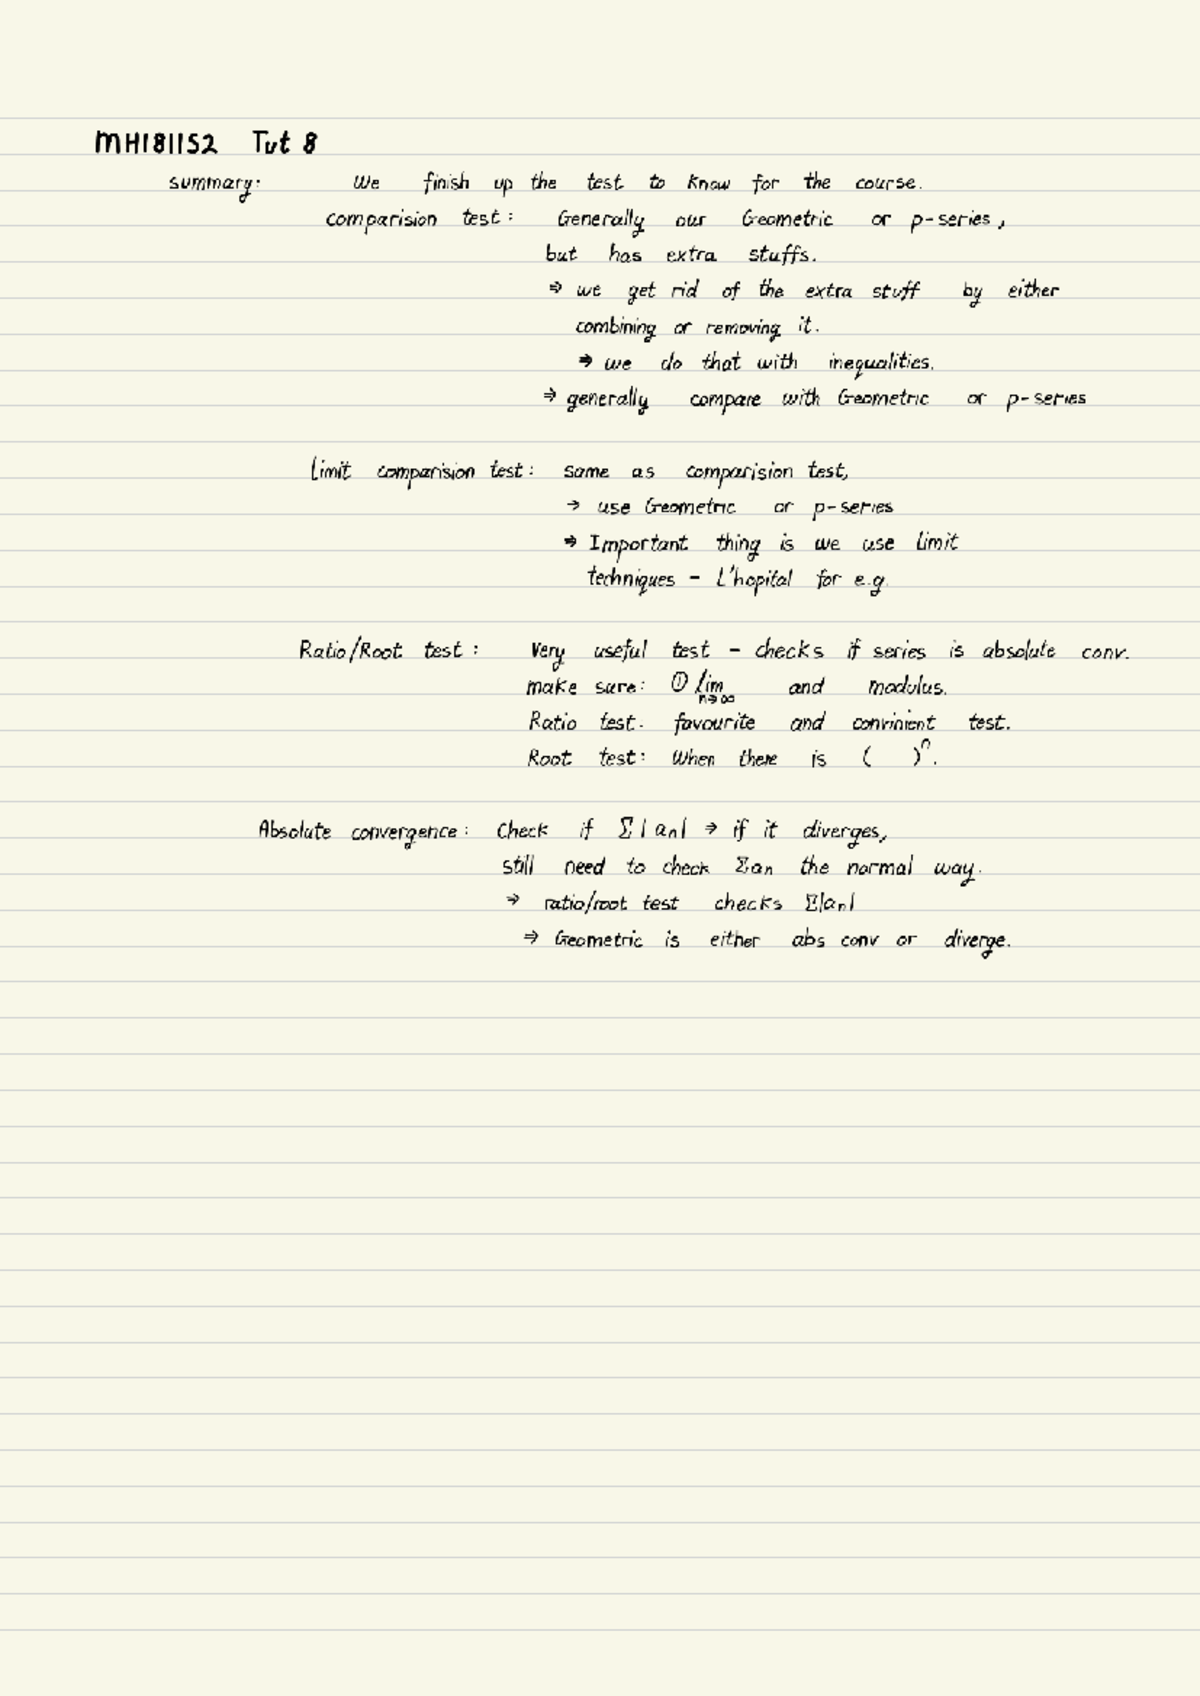 MH1811S2 Tut 8
summary: We finish up the test to know for the course.
comparision test: Generally our Geometric or p-series,
but has extra stuffs.
⇒ we get rid of the extra stuff by either
combining or removing it.
⇒ we do that with inequalities.
⇒ generally compare with Geometric or p-series
Limit comparision test: same as comparision test,
→ use Geometric or p-series
⇒ Important thing is we use limit
techniques - L'hopital for e.g.
Ratio/Root test: Very useful test - checks if series is absolute conv.
make sure: ① lim n→∞ and modulus.
Ratio test: favourite and convinient test.
Root test: When there is ( )ⁿ.
Absolute convergence: Check if Σ|an| ⇒ if it diverges,
still need to check Σan the normal way.
⇒ ratio/root test checks Σ|an|
⇒ Geometric is either abs conv or diverge.